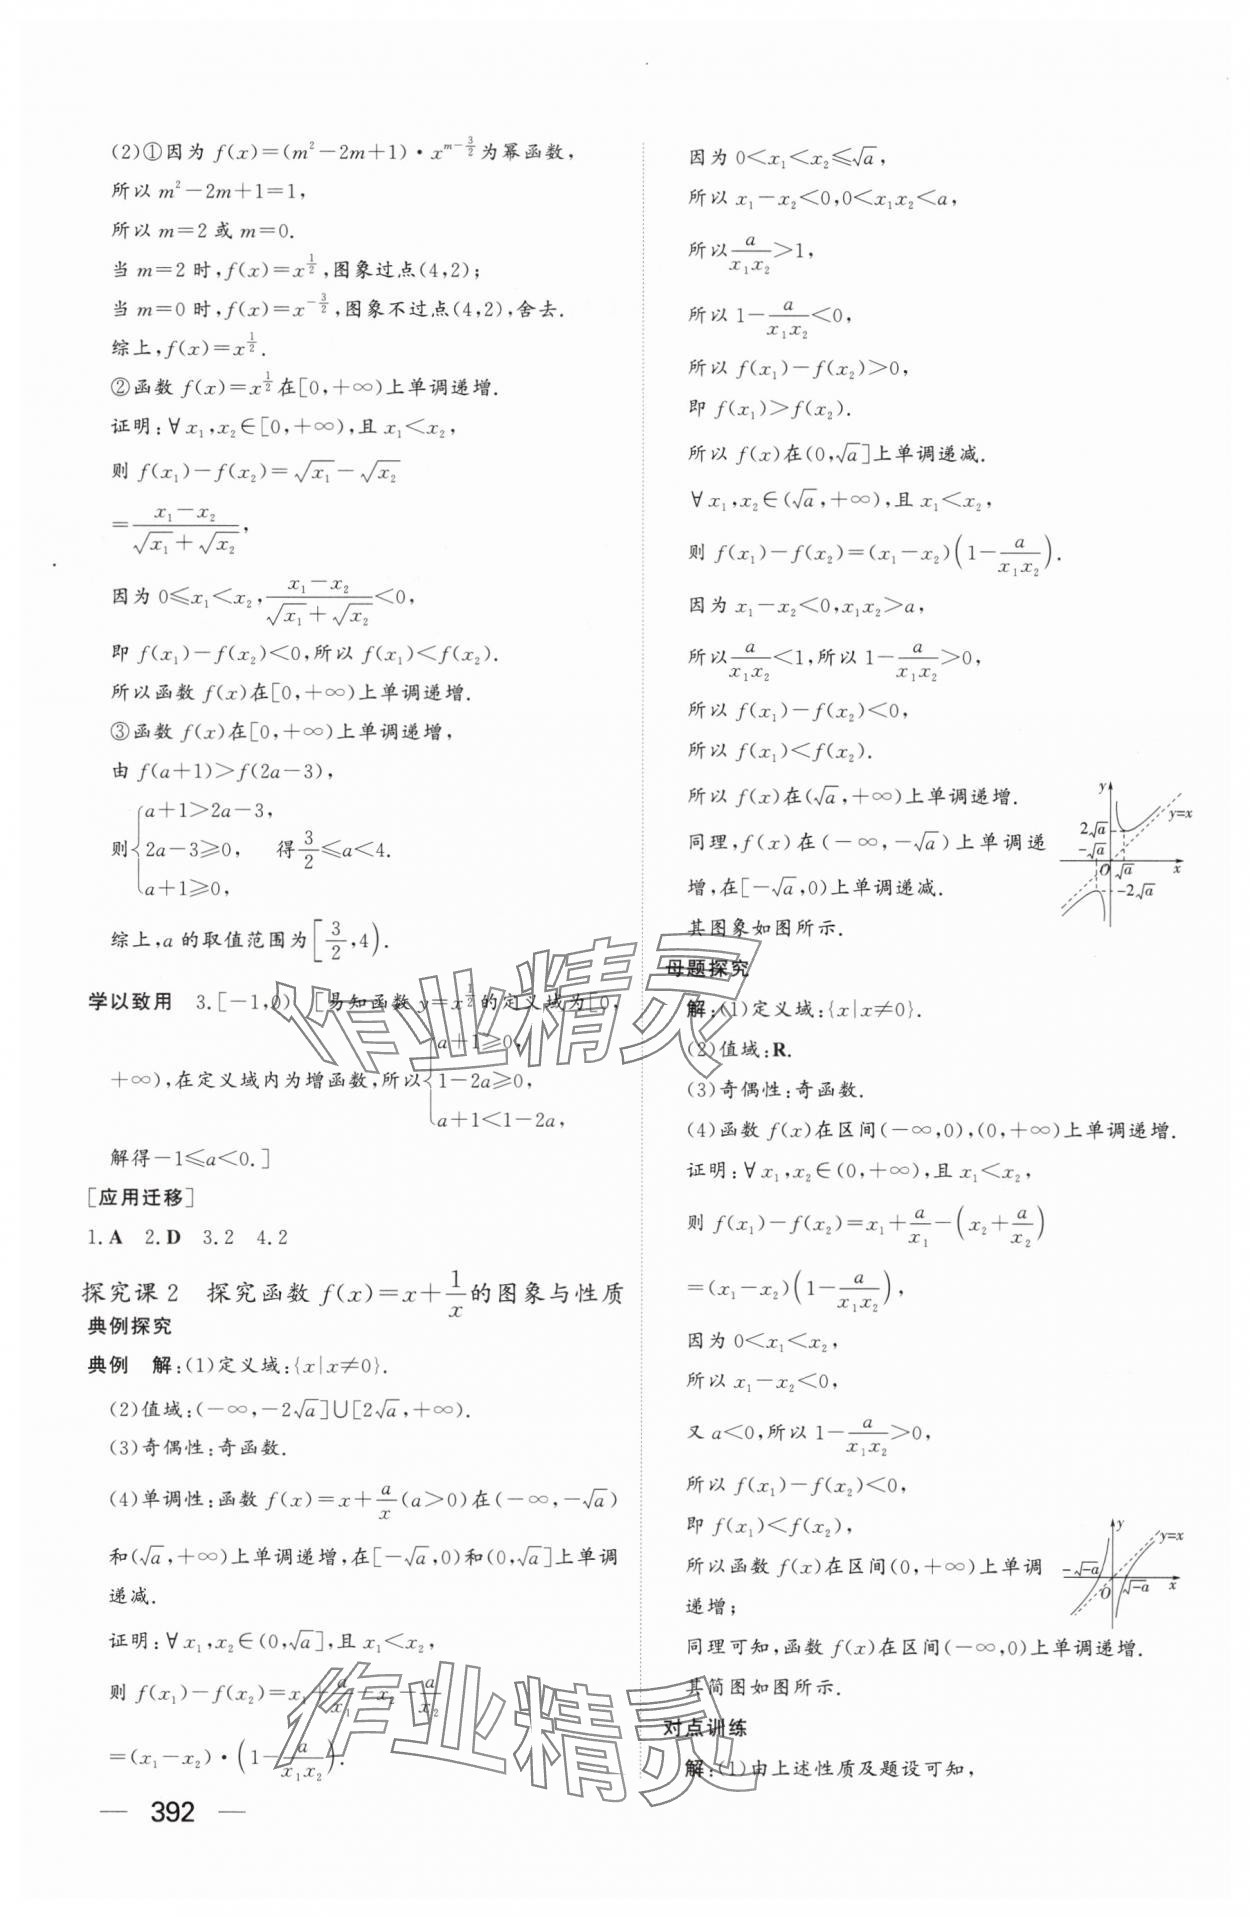 (2)①因为 f(x)=(m²-2m+1)·x^{m-\frac{3}{2}}为幂函数,
所以 m²-2m+1=1,
所以 m=2 或 m=0.
当 m=2 时,f(x)=x^{\frac{1}{2}},图象过点(4,2);
当 m=0 时,f(x)=x^{-\frac{3}{2}},图象不过点(4,2),舍去.
综上,f(x)=x^{\frac{1}{2}}.
②函数 f(x)=x^{\frac{1}{2}}在[0,+∞)上单调递增.
证明:∀x₁,x₂∈[0,+∞),且 x₁<x₂,
则 f(x₁)-f(x₂)=√x₁-√x₂
=\frac{x₁-x₂}{√x₁+√x₂},
因为 0≤x₁<x₂,\frac{x₁-x₂}{√x₁+√x₂}<0,
即 f(x₁)-f(x₂)<0,所以 f(x₁)<f(x₂).
所以函数 f(x)在[0,+∞)上单调递增.
③函数 f(x)在[0,+∞)上单调递增,
由 f(a+1)>f(2a-3),
则{a+1>2a-3,
2a-3≥0, 得\frac{3}{2}≤a<4.
a+1≥0,
综上,a 的取值范围为[\frac{3}{2},4).
学以致用 3.[-1,0) [易知函数 y=x^{\frac{1}{2}}的定义域为[0,
+∞),在定义域内为增函数,所以{a+1≥0,
1-2a≥0,
a+1<1-2a,
解得-1≤a<0.]
[应用迁移]
1.A 2.D 3.2 4.2
探究课2 探究函数 f(x)=x+\frac{1}{x}的图象与性质
典例探究
典例 解:(1)定义域:{x|x≠0}.
(2)值域:(-∞,-2√a]∪[2√a,+∞).
(3)奇偶性:奇函数.
(4)单调性:函数 f(x)=x+\frac{a}{x}(a>0)在(-∞,-√a)
和(√a,+∞)上单调递增,在[-√a,0)和(0,√a]上单调
递减.
证明:∀x₁,x₂∈(0,√a],且 x₁<x₂,
则 f(x₁)-f(x₂)=x₁+\frac{a}{x₁}-x₂-\frac{a}{x₂}
=(x₁-x₂)·(1-\frac{a}{x₁x₂}).
— 392 —
因为 0<x₁<x₂≤√a,
所以 x₁-x₂<0,0<x₁x₂<a,
所以\frac{a}{x₁x₂}>1,
所以 1-\frac{a}{x₁x₂}<0,
所以 f(x₁)-f(x₂)>0,
即 f(x₁)>f(x₂).
所以 f(x)在(0,√a]上单调递减.
∀x₁,x₂∈(√a,+∞),且 x₁<x₂,
则 f(x₁)-f(x₂)=(x₁-x₂)(1-\frac{a}{x₁x₂}).
因为 x₁-x₂<0,x₁x₂>a,
所以\frac{a}{x₁x₂}<1,所以 1-\frac{a}{x₁x₂}>0,
所以 f(x₁)-f(x₂)<0,
所以 f(x₁)<f(x₂).
所以 f(x)在(√a,+∞)上单调递增.
同理,f(x)在(-∞,-√a)上单调递
增,在[-√a,0)上单调递减.
其图象如图所示.
y
y=x
2√a
-√a
O √a x
-2√a
母题探究
解:(1)定义域:{x|x≠0}.
(2)值域:R.
(3)奇偶性:奇函数.
(4)函数 f(x)在区间(-∞,0),(0,+∞)上单调递增.
证明:∀x₁,x₂∈(0,+∞),且 x₁<x₂,
则 f(x₁)-f(x₂)=x₁+\frac{a}{x₁}-(x₂+\frac{a}{x₂})
=(x₁-x₂)(1-\frac{a}{x₁x₂}),
因为 0<x₁<x₂,
所以 x₁-x₂<0,
又 a<0,所以 1-\frac{a}{x₁x₂}>0,
所以 f(x₁)-f(x₂)<0,
即 f(x₁)<f(x₂),
所以函数 f(x)在区间(0,+∞)上单调
递增;
y
y=x
-√-a
O √-a x
同理可知,函数 f(x)在区间(-∞,0)上单调递增.
其简图如图所示.
对点训练
解:(1)由上述性质及题设可知,
作业精灵
作业精灵